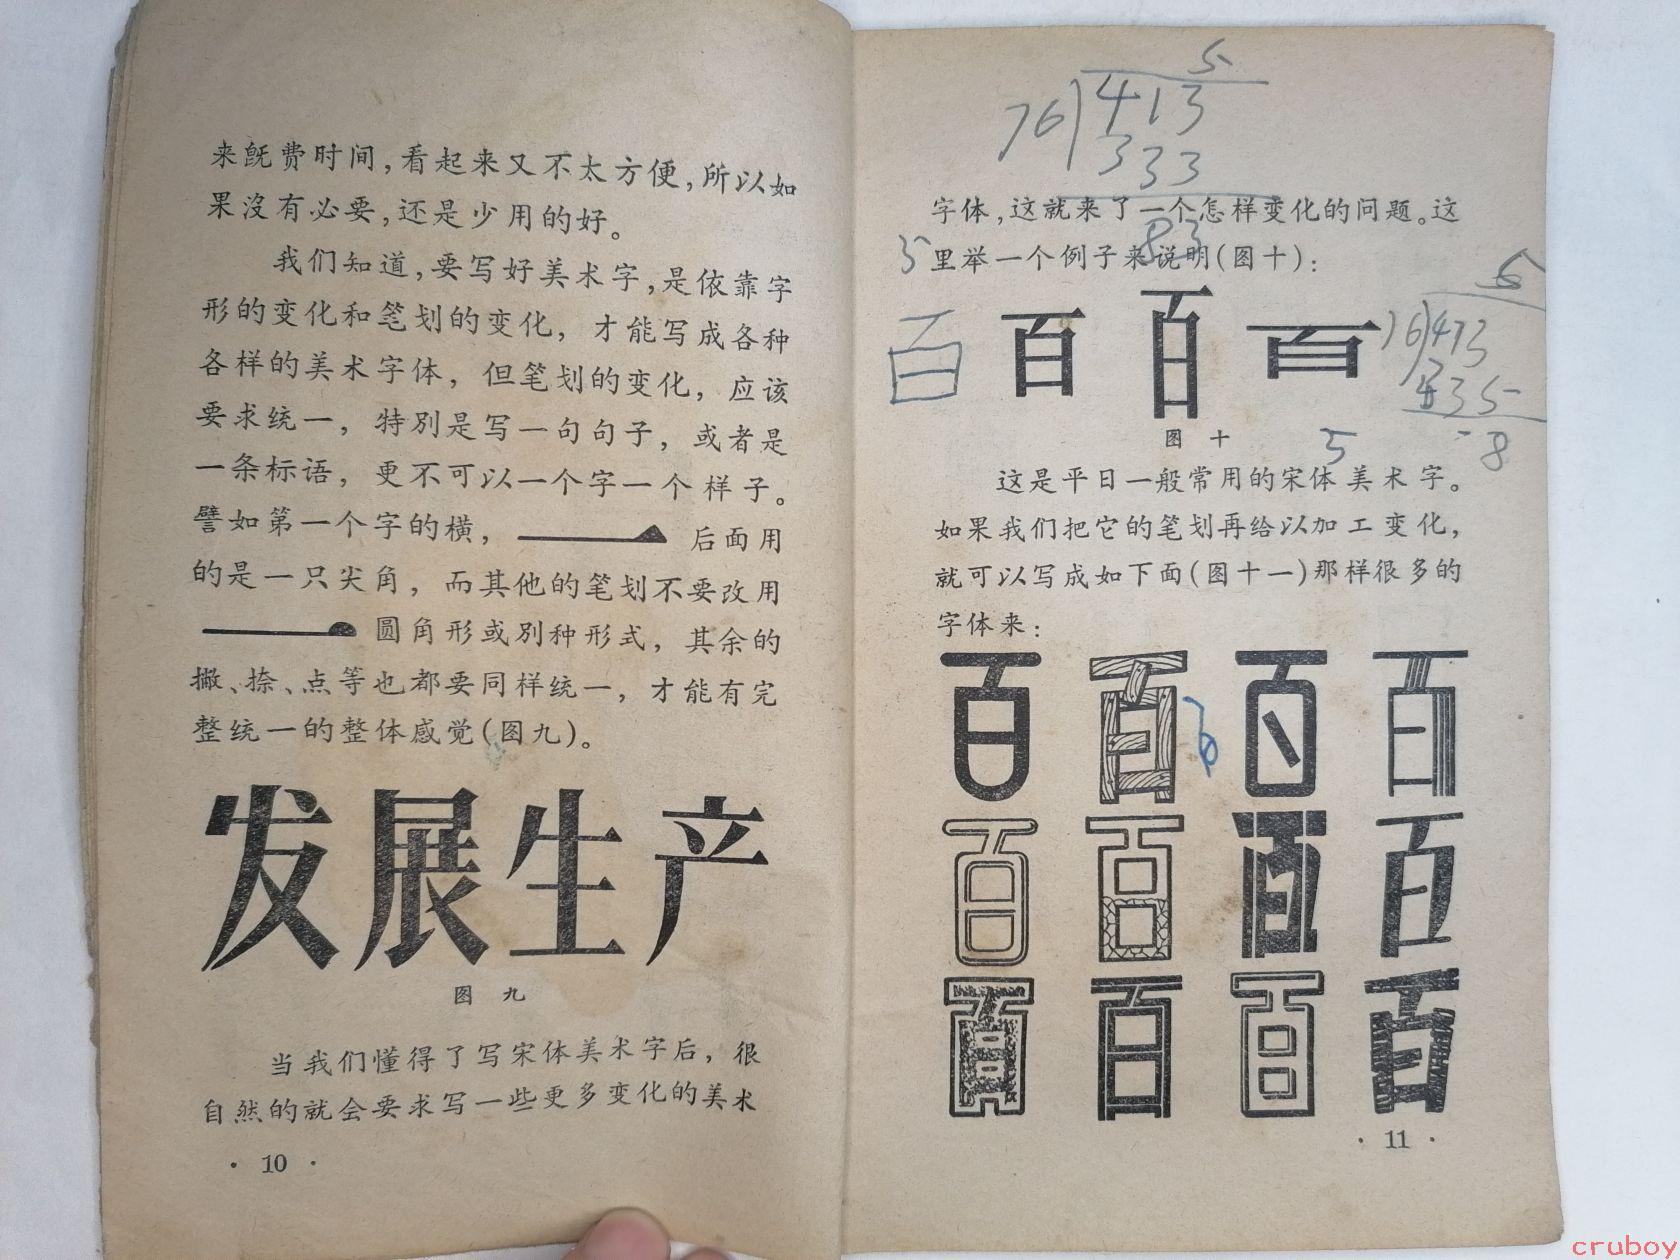 来旣费时间，看起来又不太方便，所以如
果沒有必要，还是少用的好。
我们知道，要写好美术字，是依靠字
形的变化和笔划的变化，才能写成各种
各样的美术字体，但笔划的变化，应该
要求统一，特別是写一句句子，或者是
一条标语，更不可以一个字一个样子。
譬如第一个字的横，后面用
的是一只尖角，而其他的笔划不要改用
圆角形或別种形式，其余的
撇、捺、点等也都要同样统一，才能有完
整统一的整体感觉（图九）。
发展生产
图 九
当我们懂得了写宋体美术字后，很
自然的就会要求写一些更多变化的美术
· 10 ·
5
76)413
333
83
字体，这就来了一个怎样变化的问题。这
5
里举一个例子来说明（图十）：
百 百 百 百
图 十
5
76)413
35
8
5
这是平日一般常用的宋体美术字。
如果我们把它的笔划再给以加工变化，
就可以写成如下面（图十一）那样很多的
字体来：
百 百 百 百
百 百 百 百
百 百 百 百
· 11 ·
cruboy